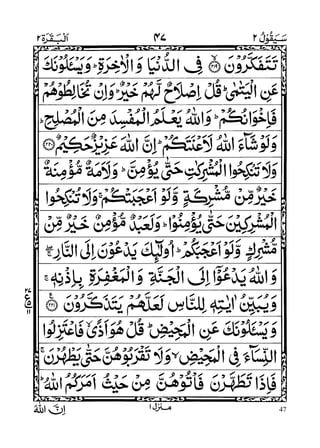 اَلۡبَقَرَة ۲ ۴۷ سَيَقُوۡلُ ۲
تَتَفَكَّرُوۡنَ ﴿۲۱۹﴾ فِى الدُّنۡيَا وَ الۡاٰخِرَةِ ؕ وَ يَسۡـَٔلُوۡنَكَ
عَنِ الۡيَتٰمٰى ؕ قُلۡ اِصۡلَاحٌ لَّهُمۡ خَيۡرٌ ؕ وَ اِنۡ تُخَالِطُوۡهُمۡ
فَاِخۡوَانُكُمۡ ؕ وَ اللّٰهُ يَعۡلَمُ الۡمُفۡسِدَ مِنَ الۡمُصۡلِحِ ؕ
وَ لَوۡ شَآءَ اللّٰهُ لَاَعۡنَتَكُمۡ ؕ اِنَّ اللّٰهَ عَزِيۡزٌ حَكِيۡمٌ ﴿۲۲۰﴾
وَ لَا تَنۡكِحُوا الۡمُشۡرِكٰتِ حَتّٰى يُؤۡمِنَّ ؕ وَ لَاَمَةٌ مُّؤۡمِنَةٌ
خَيۡرٌ مِّنۡ مُّشۡرِكَةٍ وَّ لَوۡ اَعۡجَبَتۡكُمۡ ۚ وَ لَا تُنۡكِحُوا
الۡمُشۡرِكِيۡنَ حَتّٰى يُؤۡمِنُوۡا ؕ وَ لَعَبۡدٌ مُّؤۡمِنٌ خَيۡرٌ مِّنۡ
مُّشۡرِكٍ وَّ لَوۡ اَعۡجَبَكُمۡ ؕ اُولٰٓئِكَ يَدۡعُوۡنَ اِلَى النَّارِ ۖۚ
وَ اللّٰهُ يَدۡعُوۡٓا اِلَى الۡجَنَّةِ وَ الۡمَغۡفِرَةِ بِاِذۡنِهٖ ۚ
وَ يُبَيِّنُ اٰيٰتِهٖ لِلنَّاسِ لَعَلَّهُمۡ يَتَذَكَّرُوۡنَ ﴿۲۲۱﴾
وَ يَسۡـَٔلُوۡنَكَ عَنِ الۡمَحِيۡضِ ؕ قُلۡ هُوَ اَذًى ۙ فَاعۡتَزِلُوا
النِّسَآءَ فِى الۡمَحِيۡضِ ۙ وَ لَا تَقۡرَبُوۡهُنَّ حَتّٰى يَطۡهُرۡنَ ۚ
فَاِذَا تَطَهَّرۡنَ فَاۡتُوۡهُنَّ مِنۡ حَيۡثُ اَمَرَكُمُ اللّٰهُ ؕ
اِنَّ اللّٰهَ منزل ۱ 47